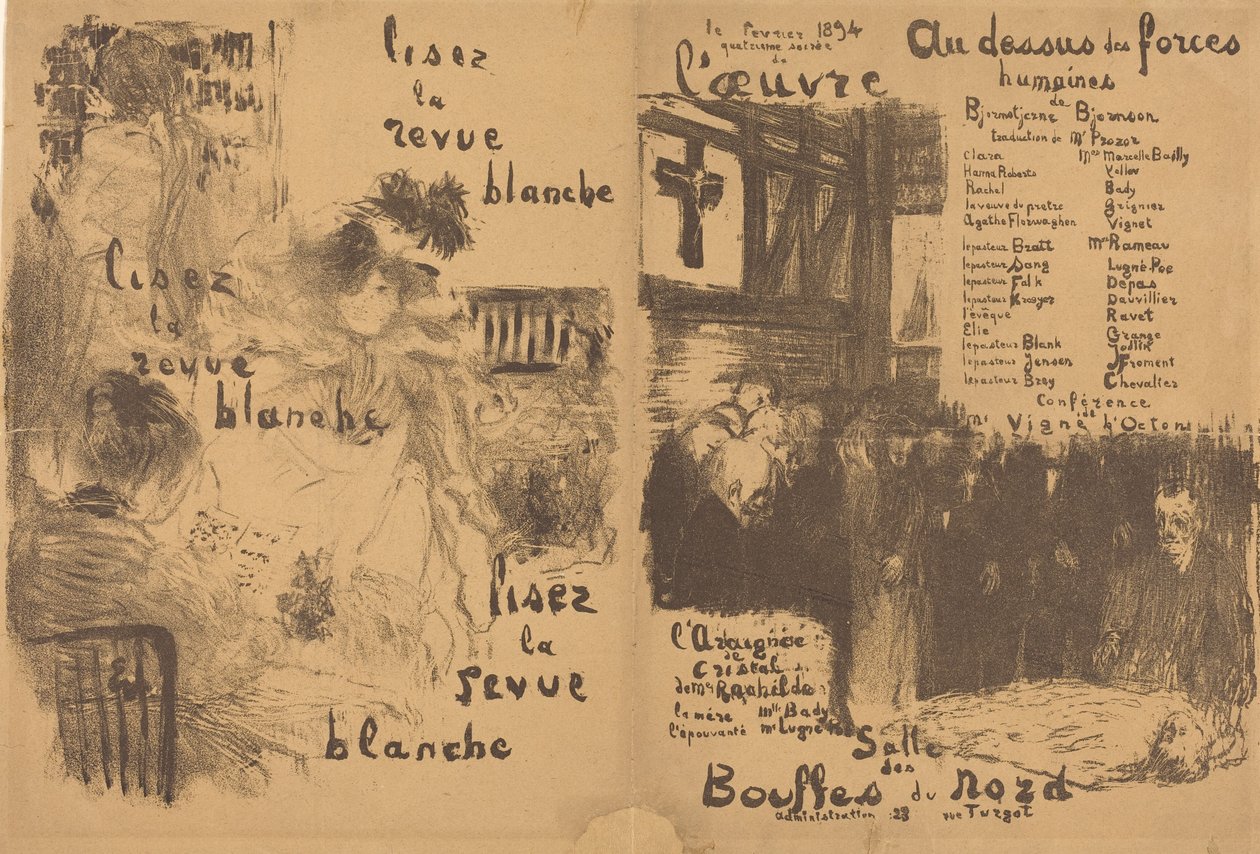 lisez
la
revue
blanche
lisez
la
revue
blanche
lisez
la
revue
blanche
le fevrier 1894
quatrieme soirée
de
l'œuvre
Au dessus des forces
humaines
de
Bjornstjerne Bjornson
traduction de Mr Prozor
Clara Mes Marcelle Bailly
Hanna Roberts Yellov
Rachel Bady
la veuve du pretre Grignier
Agathe Florwaghen Vignet
le pasteur Bratt Mrs Rameau
le pasteur Sang Lugné-Poe
le pasteur Falk Depas
le pasteur Kroyer Dauvillier
l'évêque Ravet
Elie Grange
le pasteur Blank Joslin
le pasteur Jensen Froment
le pasteur Brey Chevalier
Conférence
de
Mr Vigné d'Octon
l'Araignée
de
Cristal
de Me Rachilde
la mère Mlle Bady
l'épouvanté Mr Lugné Poe
Salle
des
Bouffes du Nord
administration : 23 rue Turgot